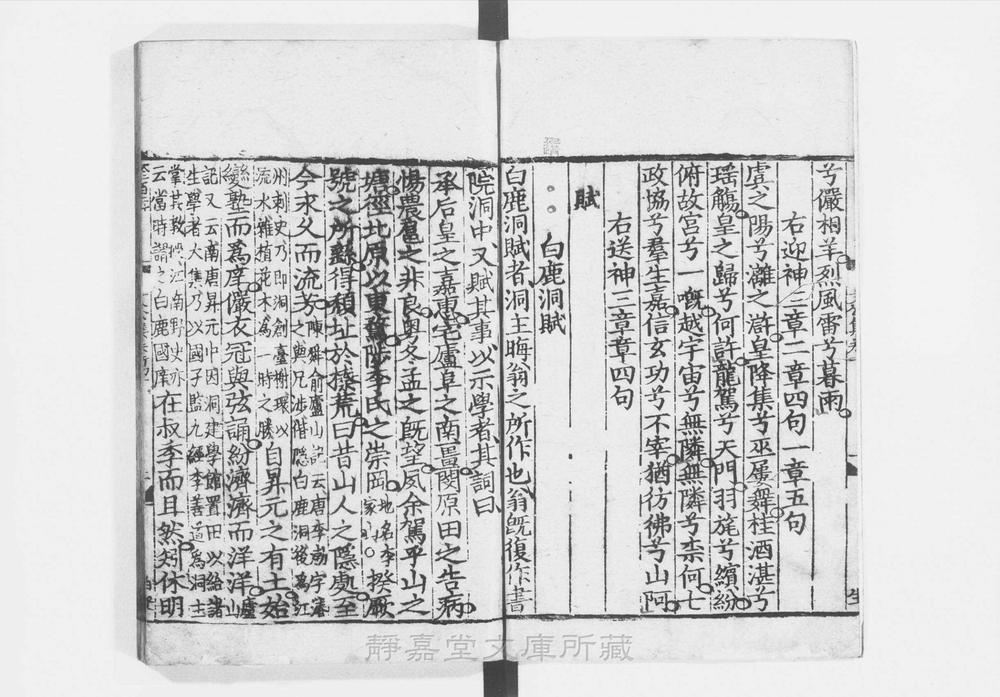 兮儼相羊烈風雷兮暮雨
右迎神三章二章四句一章五句
虞之陽兮灕之滸皇降集兮巫屢舞桂酒湛兮
瑶觴皇之歸兮何許龍駕兮天門羽旄兮繽紛
俯故宮兮一慨越宇宙兮無隣無隣兮柰何七
政協兮羣生嘉信玄功兮不宰猶彷彿兮山阿
右送神三章章四句
賦
白鹿洞賦
白鹿洞賦者洞主晦翁之所作也翁旣復作書
院洞中又賦其事以示學者其詞曰
承后皇之嘉惠宅廬阜之南畺閔原田之告病
惕農扈之非良粤冬孟之旣望夙余駕乎山之
塘徑北原以東騖陟李氏之崇岡地名李家山揆厥
號之所繇得頹址於榛荒曰昔山人之隱處至
今永久而流芳陳舜俞廬山記云唐李渤字濬之與兄涉偕隱白鹿洞後爲江
州刺史乃即洞創臺榭環以流水雜植花木爲一時之勝自昇元之有土始
變塾而爲庠儼衣冠與弦誦紛濟濟而洋洋廬山
記又云南唐昇元中因洞建學館置田以給諸生學者大集乃以國子監九經李善道爲洞主
掌其教授江南野史亦云當時謂之白鹿國庠在叔季而且然矧休明
靜嘉堂文庫所藏